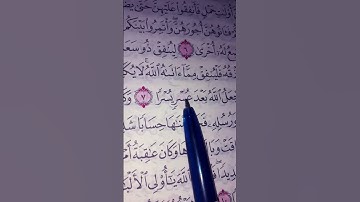 أُو۟لَٰتِ حَمْلٍ فَأَنفِقُوا۟ عَلَيْهِنَّ حَتَّىٰ يَضَ
فَـَٔاتُوهُنَّ أُجُورَهُنَّ وَأْتَمِرُوا۟ بَيْنَكُ
ضِعُ لَهُۥٓ أُخْرَىٰ ٦ لِيُنفِقْ ذُو سَعَ
زْقُهُۥ فَلْيُنفِقْ مِمَّآ ءَاتَىٰهُ ٱللَّهُ لَا يُكَ
جْعَلُ ٱللَّهُ بَعْدَ عُسْرٍ يُسْرًا ٧ وَكَ
وَرُسُلِهِۦ حِسَابًا شَ
وَكَانَ عَٰقِبَةُ أَمْ
ٱللَّهَ يَٰٓأُو۟لِى ٱلْأَلْبَ